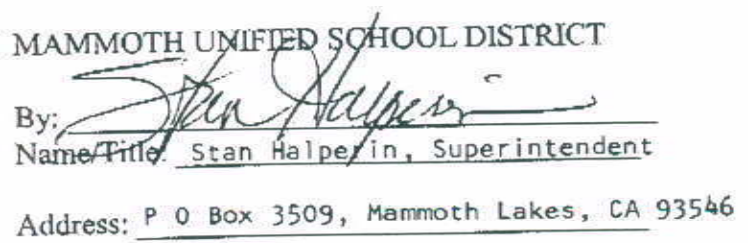 MAMMOTH UNIFIED SCHOOL DISTRICT
By: Stan Halperin
Name/Title: Stan Halperin, Superintendent
Address: P O Box 3509, Mammoth Lakes, CA 93546